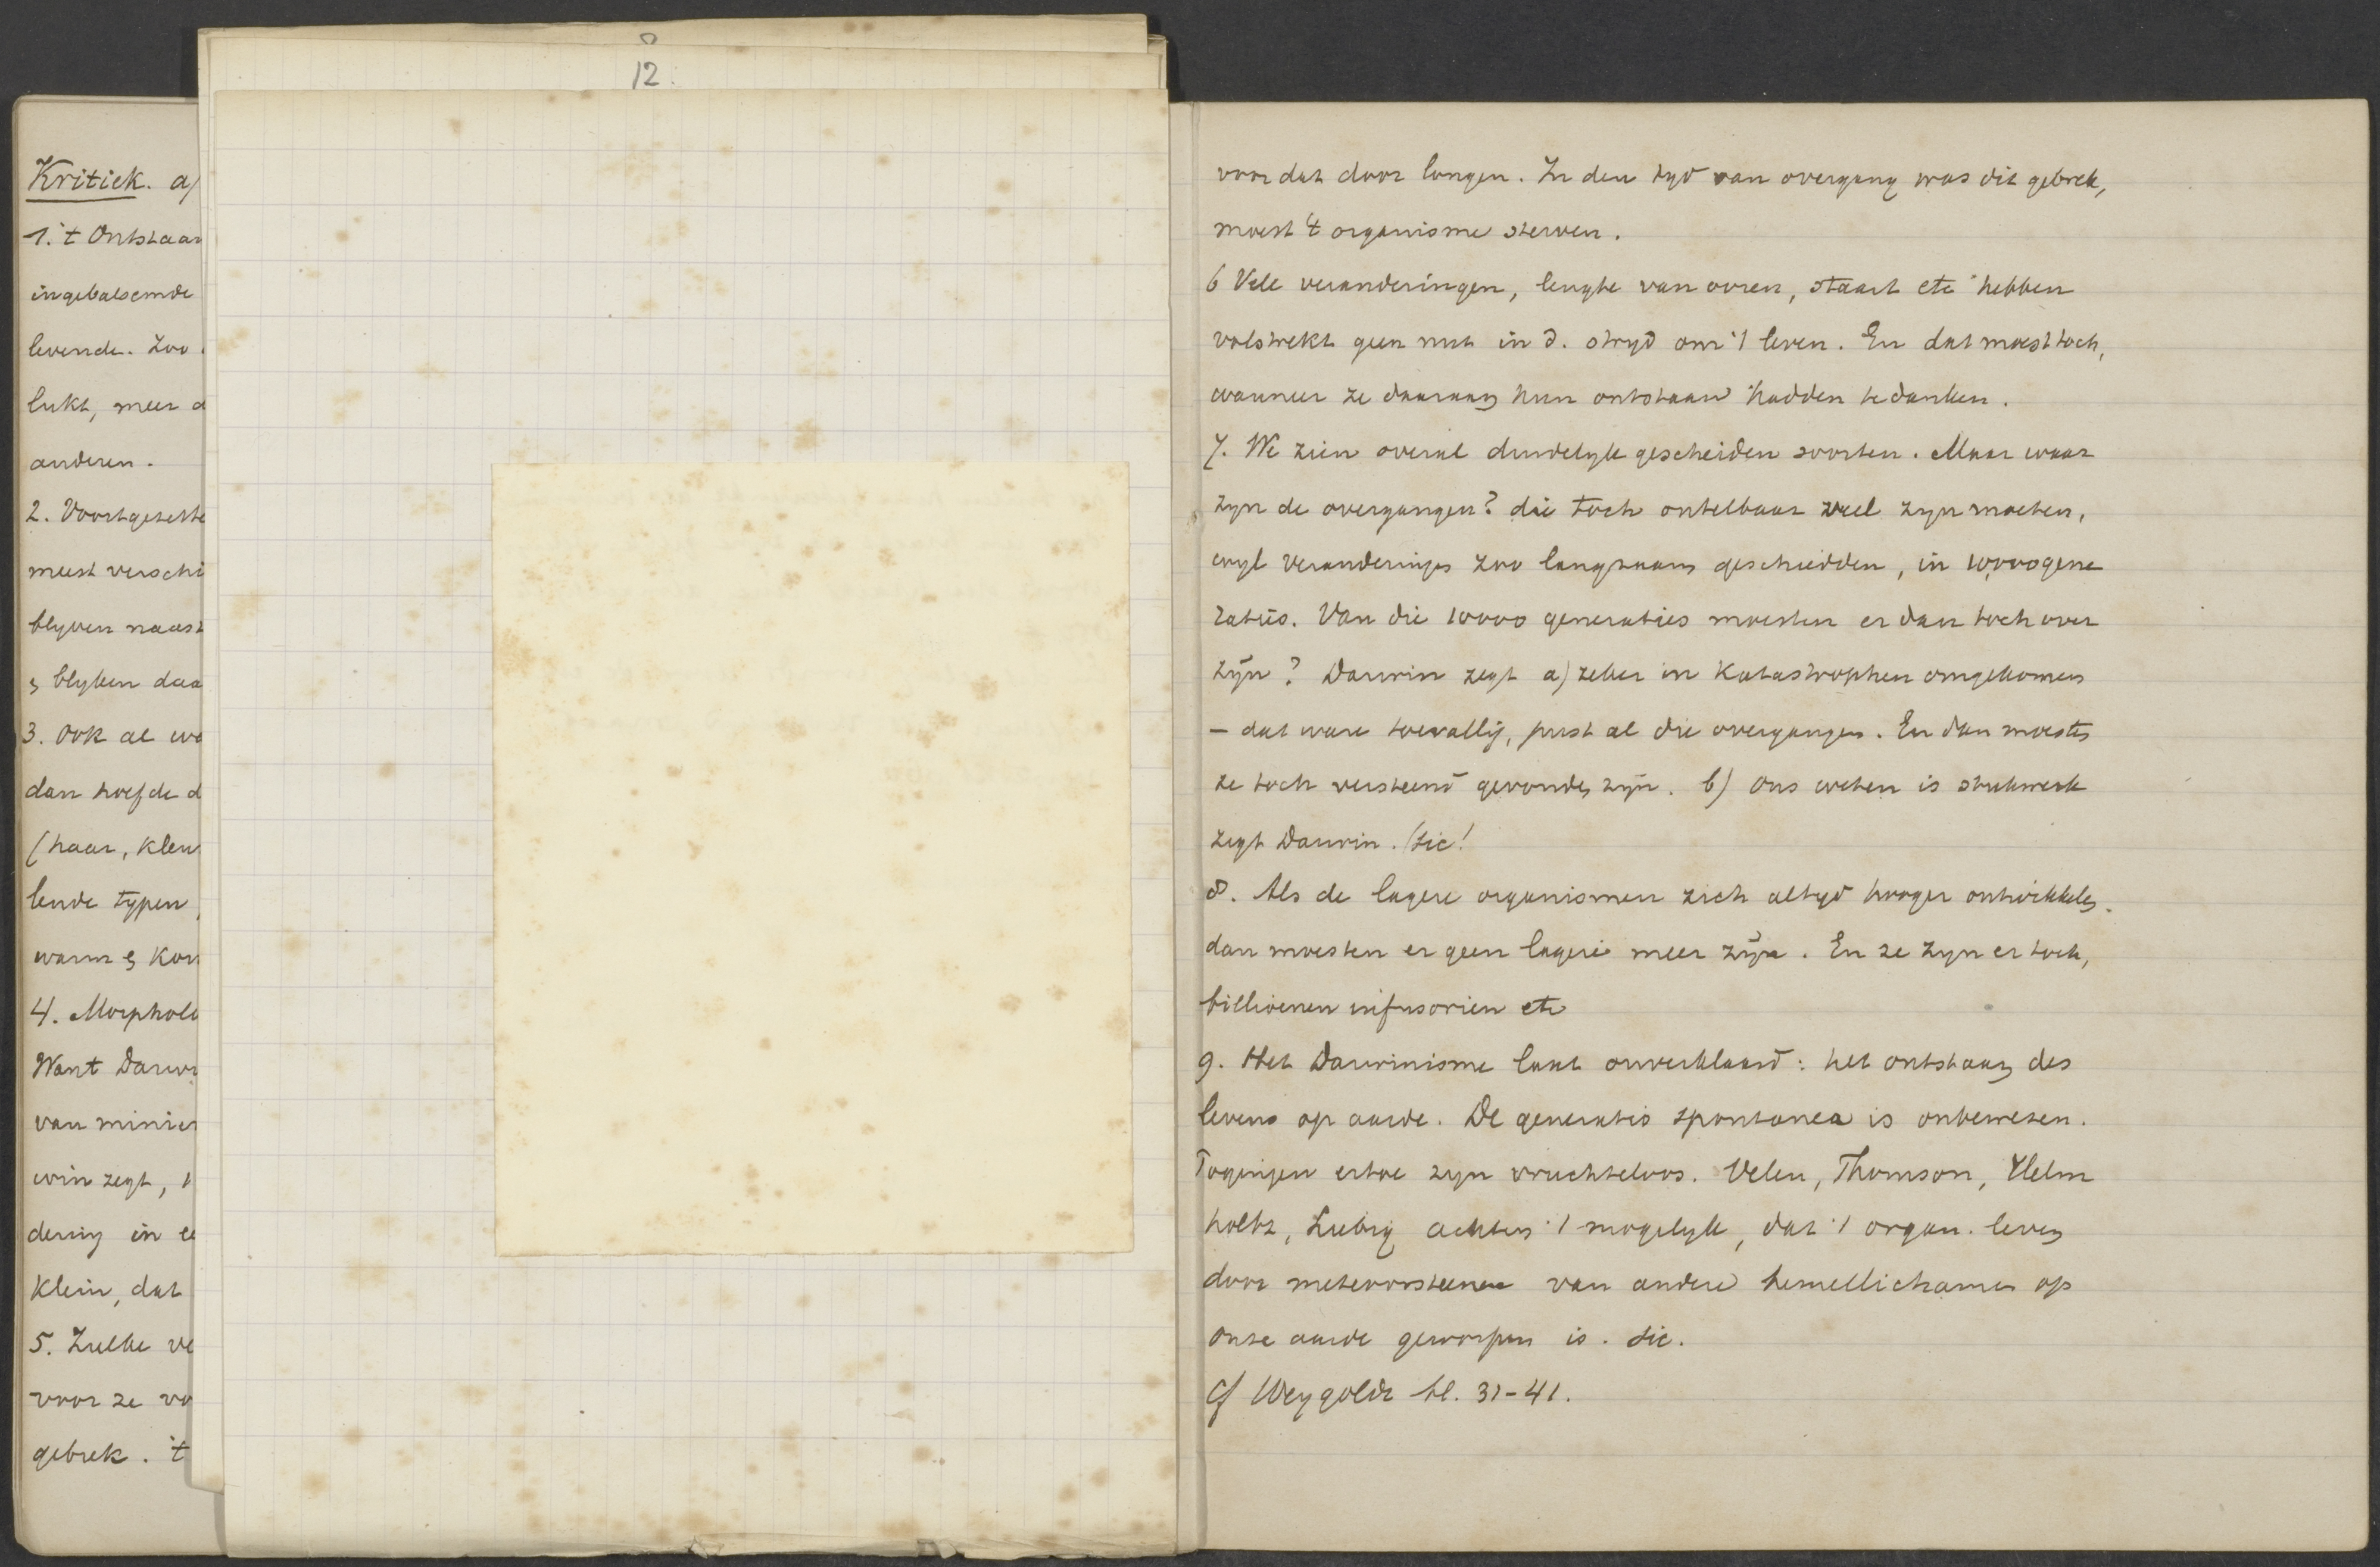 12.
Kritiek. a)
1. 't Ontstaan
ingebalsemde
levende. Zoo
lukt, meer d
anderen.
2. Voortgezette
meest verschi
blyven naast
& blyken daa
3. Ook al wa
dan hoefde d
(haar, kleu
lende typen
warm & kou
4. Morpholo
Want Darwi
van minier
win zegt,
dering in ee
klein, dat
5. Zulke ve
voor ze vo
gebrek. 't
voor dat door longen. In den tyd van overgang was dit gebrek,
moest 't organisme sterven.
6 Vele veranderingen, lengte van ooren, staart etc hebben
volstrekt geen nut in d. stryd om 't leven. En dat moest toch,
wanneer ze daaraan hun ontstaan hadden te danken.
7. We zien overal duidelyk gescheiden soorten. Maar waar
zyn de overgangen? die toch ontelbaar veel zyn moeten,
wyl veranderingen zoo langzaam geschiedden, in 10,000 gene
raties. Van die 10000 generaties moesten er dan toch over
zyn? Darwin zegt a) zeker in Katastrophen omgekomen
– dat ware toevallig, juist al die overgangen. En dan moesten
ze toch versteend gevonden zyn. b) Ons weten is stukwerk
zegt Darwin. (sic!
8. Als de lagere organismen zich altyd hooger ontwikkelen.
dan moesten er geen lagere meer zyn. En ze zyn er toch,
billioenen infusorien etc
9. Het Darwinisme laat onverklaard: het ontstaan des
levens op aarde. De generatio spontanea is onbewezen.
Pogingen ertoe zyn vruchteloos. Velen, Thomson, Helm
holtz, Liebig achten 't mogelyk, dat 't organ. leven
door meteoorsteenen van andere hemellichamen op
onze aarde geworpen is. sic.
Cf Weygoldt bl. 31-41.